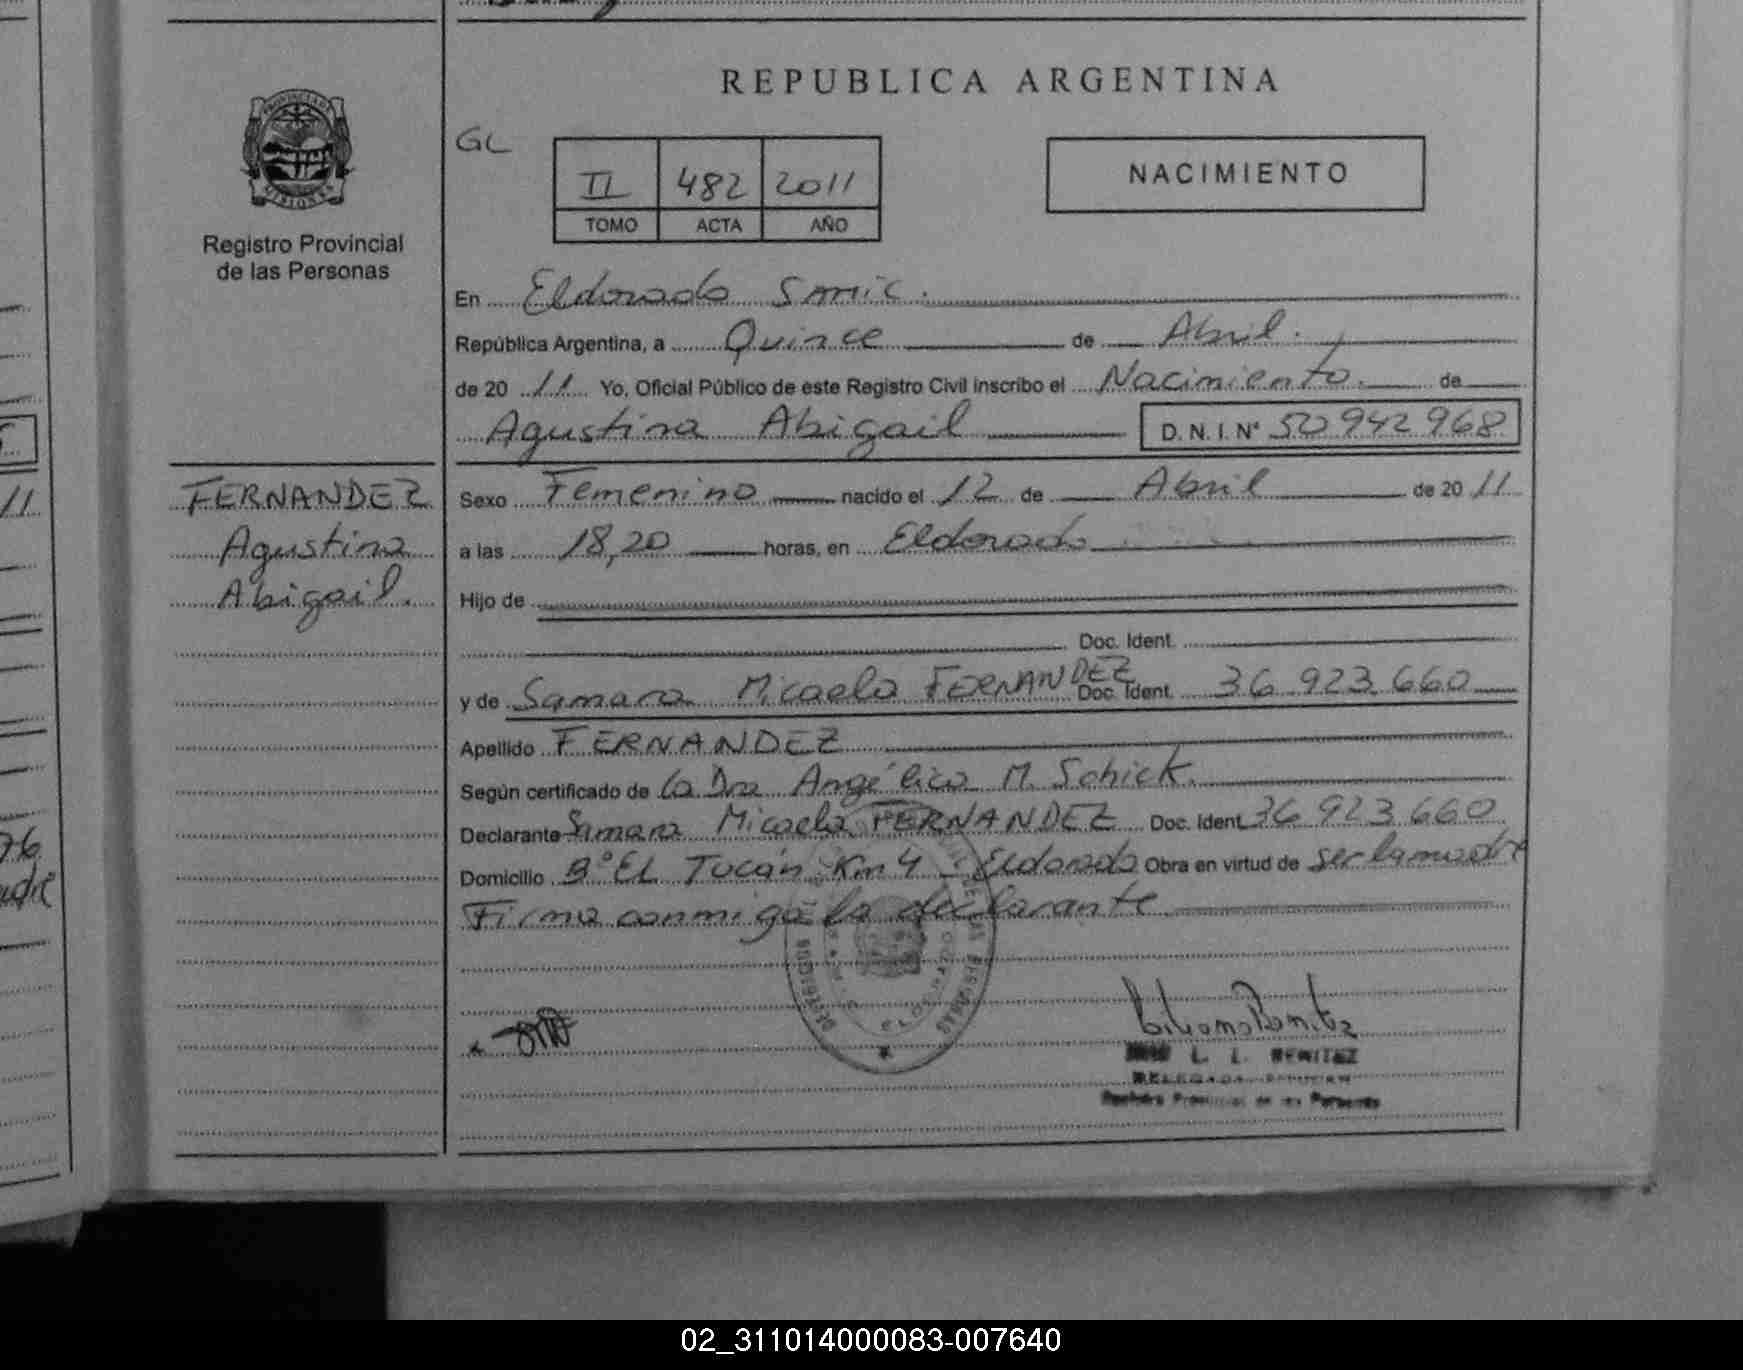 REPUBLICA ARGENTINA
GL
II 482 2011
TOMO ACTA AÑO
NACIMIENTO
PROVINCIA DE MISIONES
Registro Provincial
de las Personas
En Eldorado Smic.
República Argentina, a Quince de Abril.
de 20 11 Yo, Oficial Público de este Registro Civil inscribo el Nacimiento. de
Agustina Abigail D.N.I.N° 50942968
FERNANDEZ
Agustina
Abigail.
Sexo Femenino nacido el 12 de Abril de 20 11
a las 18,20 horas, en Eldorado
Hijo de
Doc. Ident.
y de Samara Micaela FERNANDEZ Doc. Ident. 36 923 660
Apellido FERNANDEZ
Según certificado de la Dra Angélica M. Schick.
Declarante Samara Micaela FERNANDEZ Doc. Ident. 36 923 660
Domicilio B° EL Tucán Km 4 Eldorado Obra en virtud de ser la madre
Firma conmigo la declarante
DE LAS PERSONAS
Liliana Benitez
L. I. BENITEZ
DELEGADA
Registro Provincial de las Personas
11
76
02_311014000083-007640